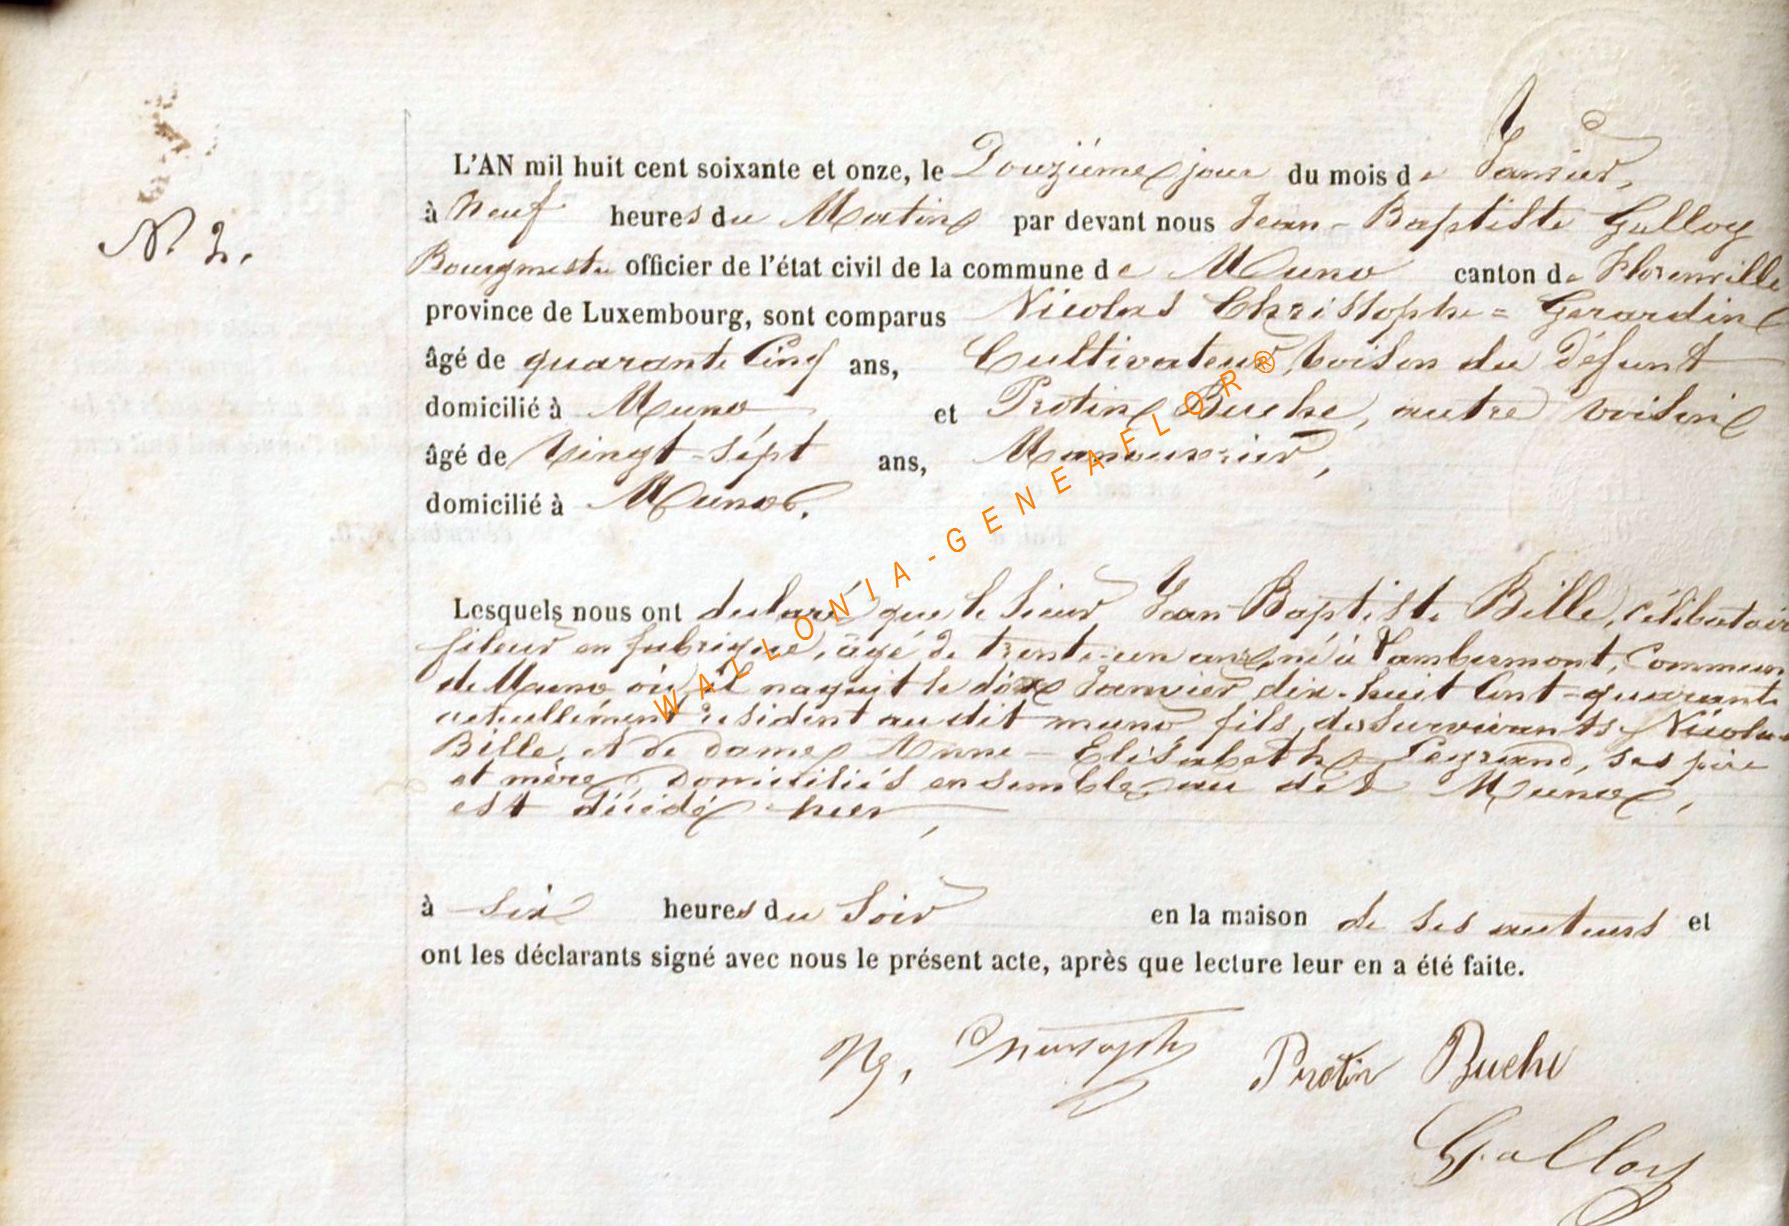 L'AN mil huit cent soixante et onze, le Douziéme jour du mois de Janvier,
à Neuf heures du Matin par devant nous Jean-Baptiste Galloy
N° 2. Bourgmestre officier de l'état civil de la commune de Muno canton de Florenville
province de Luxembourg, sont comparus Nicolas Christophe = Gerardin
âgé de quarante Cinq ans, Cultivateur, voisin du Défunt
domicilié à Muno et Protin Buche, autre voisin
âgé de Vingt-sépt ans, Manouvrier,
domicilié à Muno.
Lesquels nous ont declaré que le Sieur Jean Baptiste Bille, célibataire
fileur en fabrique, âgé de trente-un ans, né à Lambermont, Commune
de Muno où il naquit le dix Janvier dix-huit Cent-quarante
actuellement résident au dit muno fils des survivants Nicolas
Bille, et de dame Anne-Elisabeth Legrand, ses père
et mère, Domiciliés ensemble au dit Muno,
est décédé hier,
à six heures du Soir en la maison de ses auteurs et
ont les déclarants signé avec nous le présent acte, après que lecture leur en a été faite.
Christophe Protin Buche
Galloy
WALLONIA-GENEAFLOR®